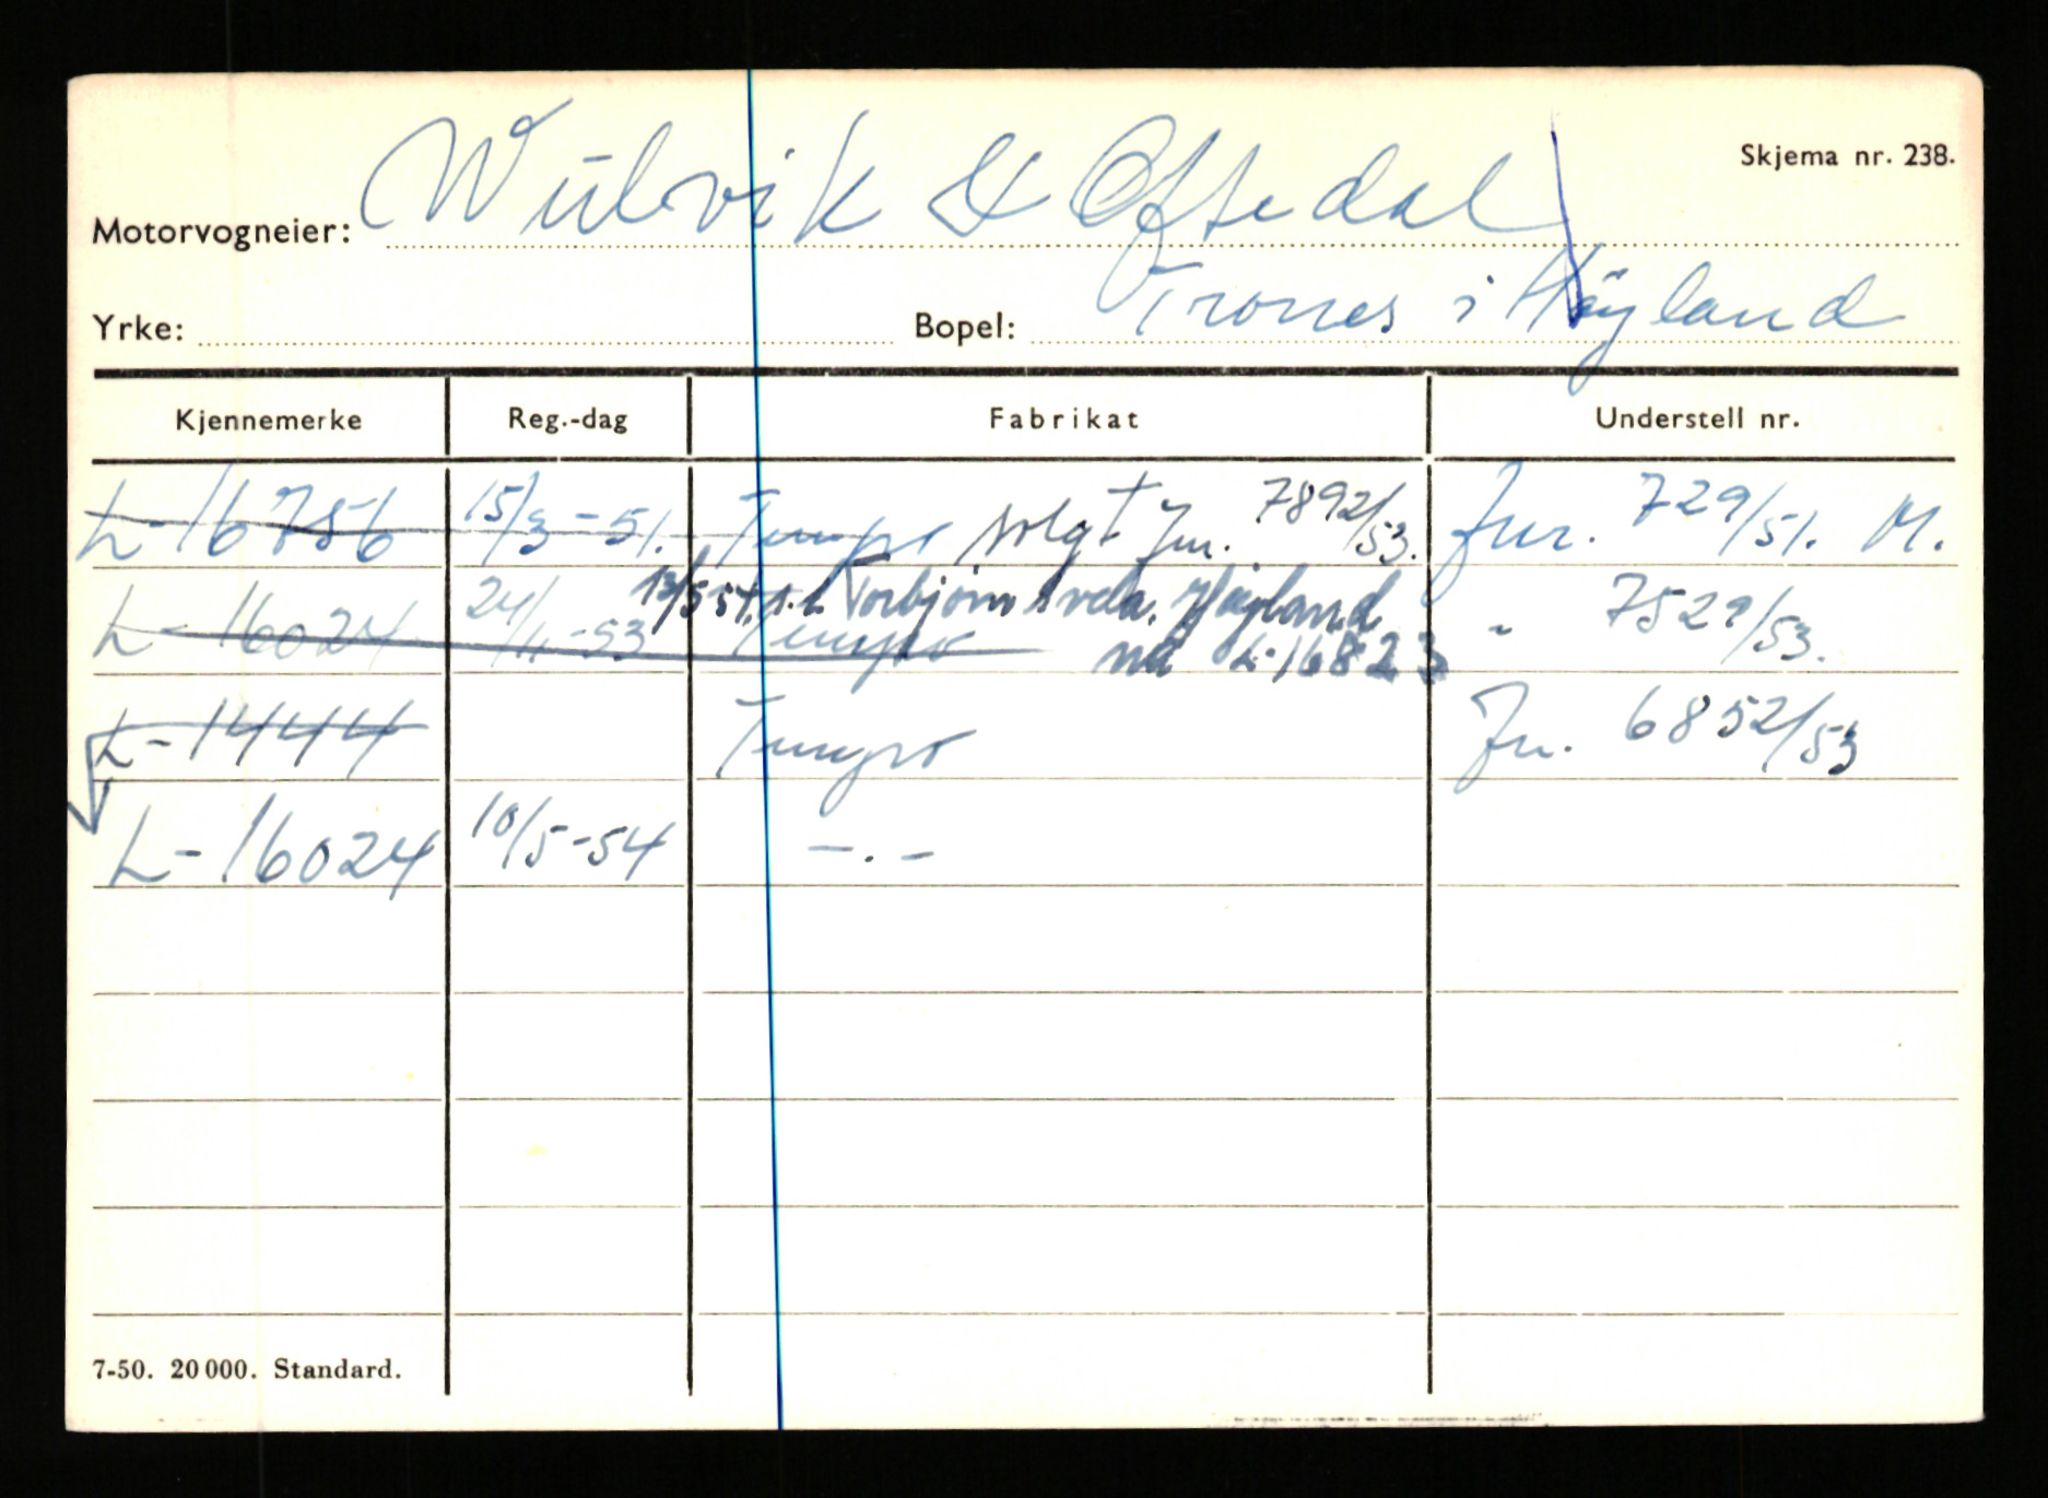 Skjema nr. 238.
Motorvogneier: Wulvik & Oftedal
Yrke: Bopel: Trones i Høyland
Kjennemerke Reg.-dag Fabrikat Understell nr.
L-16756 15/3-51. Tempo solgt Jnr. 7892/53. Jnr. 729/51. M.
13/5 54. s. t. Torbjørn Svela. Høyland
L-16024 24/11-53 Tempo nå L-16823 - 7529/53.
L-14444 Tempo Jn. 6852/53
L-16024 10/5-54 -.-
7-50. 20 000. Standard.